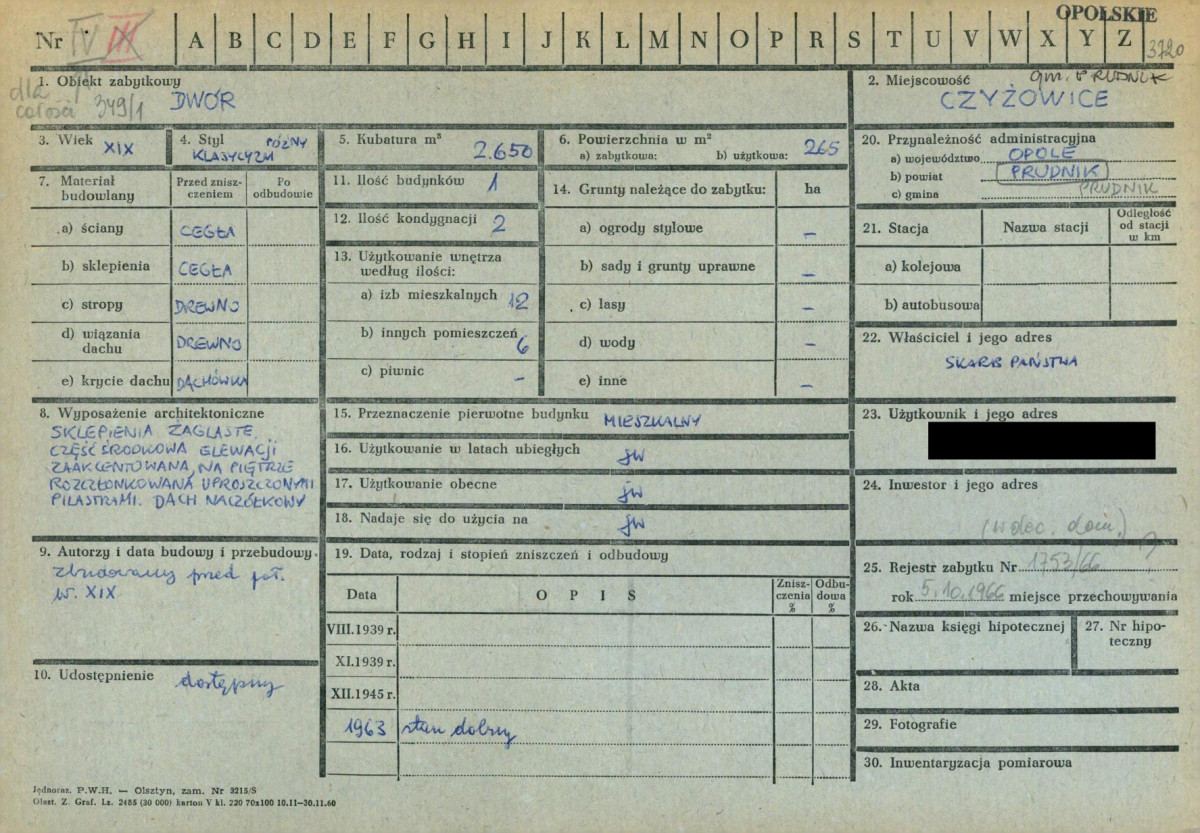 OPOLSKIE
Nr IV III A B C D E F G H I J K L M N O P R S T U V W X Y Z
3720
dla całości 349/1
1. Obiekt zabytkowy
DWÓR
2. Miejscowość gm. PRUDNIK
CZYŻOWICE
3. Wiek XIX
4. Styl PÓŹNY
KLASYCYZM
5. Kubatura m³ 2.650
6. Powierzchnia w m²
a) zabytkowa: b) użytkowa: 265
7. Materiał budowlany
Przed zniszczeniem
Po odbudowie
a) ściany CEGŁA
b) sklepienia CEGŁA
c) stropy DREWNO
d) wiązania dachu DREWNO
e) krycie dachu DACHÓWKA
8. Wyposażenie architektoniczne
SKLEPIENIA ŻAGLASTE.
CZĘŚĆ ŚRODKOWA ELEWACJI
ZAAKCENTOWANA, NA PIĘTRZE
ROZCZŁONKOWANA UPROSZCZONYMI
PILASTRAMI. DACH NACZÓŁKOWY
9. Autorzy i data budowy i przebudowy.
Zbudowany przed poł.
w. XIX
10. Udostępnienie dostępny
11. Ilość budynków 1
12. Ilość kondygnacji 2
13. Użytkowanie wnętrza
według ilości:
a) izb mieszkalnych 12
b) innych pomieszczeń 6
c) piwnic -
14. Grunty należące do zabytku: ha
a) ogrody stylowe -
b) sady i grunty uprawne -
c) lasy -
d) wody -
e) inne -
15. Przeznaczenie pierwotne budynku MIESZKALNY
16. Użytkowanie w latach ubiegłych jw
17. Użytkowanie obecne jw
18. Nadaje się do użycia na jw
19. Data, rodzaj i stopień zniszczeń i odbudowy
Data O P I S Zniszczenia % Odbudowa %
VIII.1939 r.
XI.1939 r.
XII.1945 r.
1963 stan dobry
20. Przynależność administracyjna
a) województwo OPOLE
b) powiat PRUDNIK
c) gmina PRUDNIK
21. Stacja Nazwa stacji Odległość od stacji w km
a) kolejowa
b) autobusowa
22. Właściciel i jego adres
SKARB PAŃSTWA
23. Użytkownik i jego adres
24. Inwestor i jego adres
25. Rejestr zabytku Nr 1753/66
rok 5.10.1966 miejsce przechowywania
26. Nazwa księgi hipotecznej
27. Nr hipoteczny
28. Akta
29. Fotografie
30. Inwentaryzacja pomiarowa
Jednoraz. P.W.H. — Olsztyn, zam. Nr 3215/S
Olszt. Z. Graf. Lz. 2485 (30 000) karton V kl. 220 70x100 10.11—30.11.60